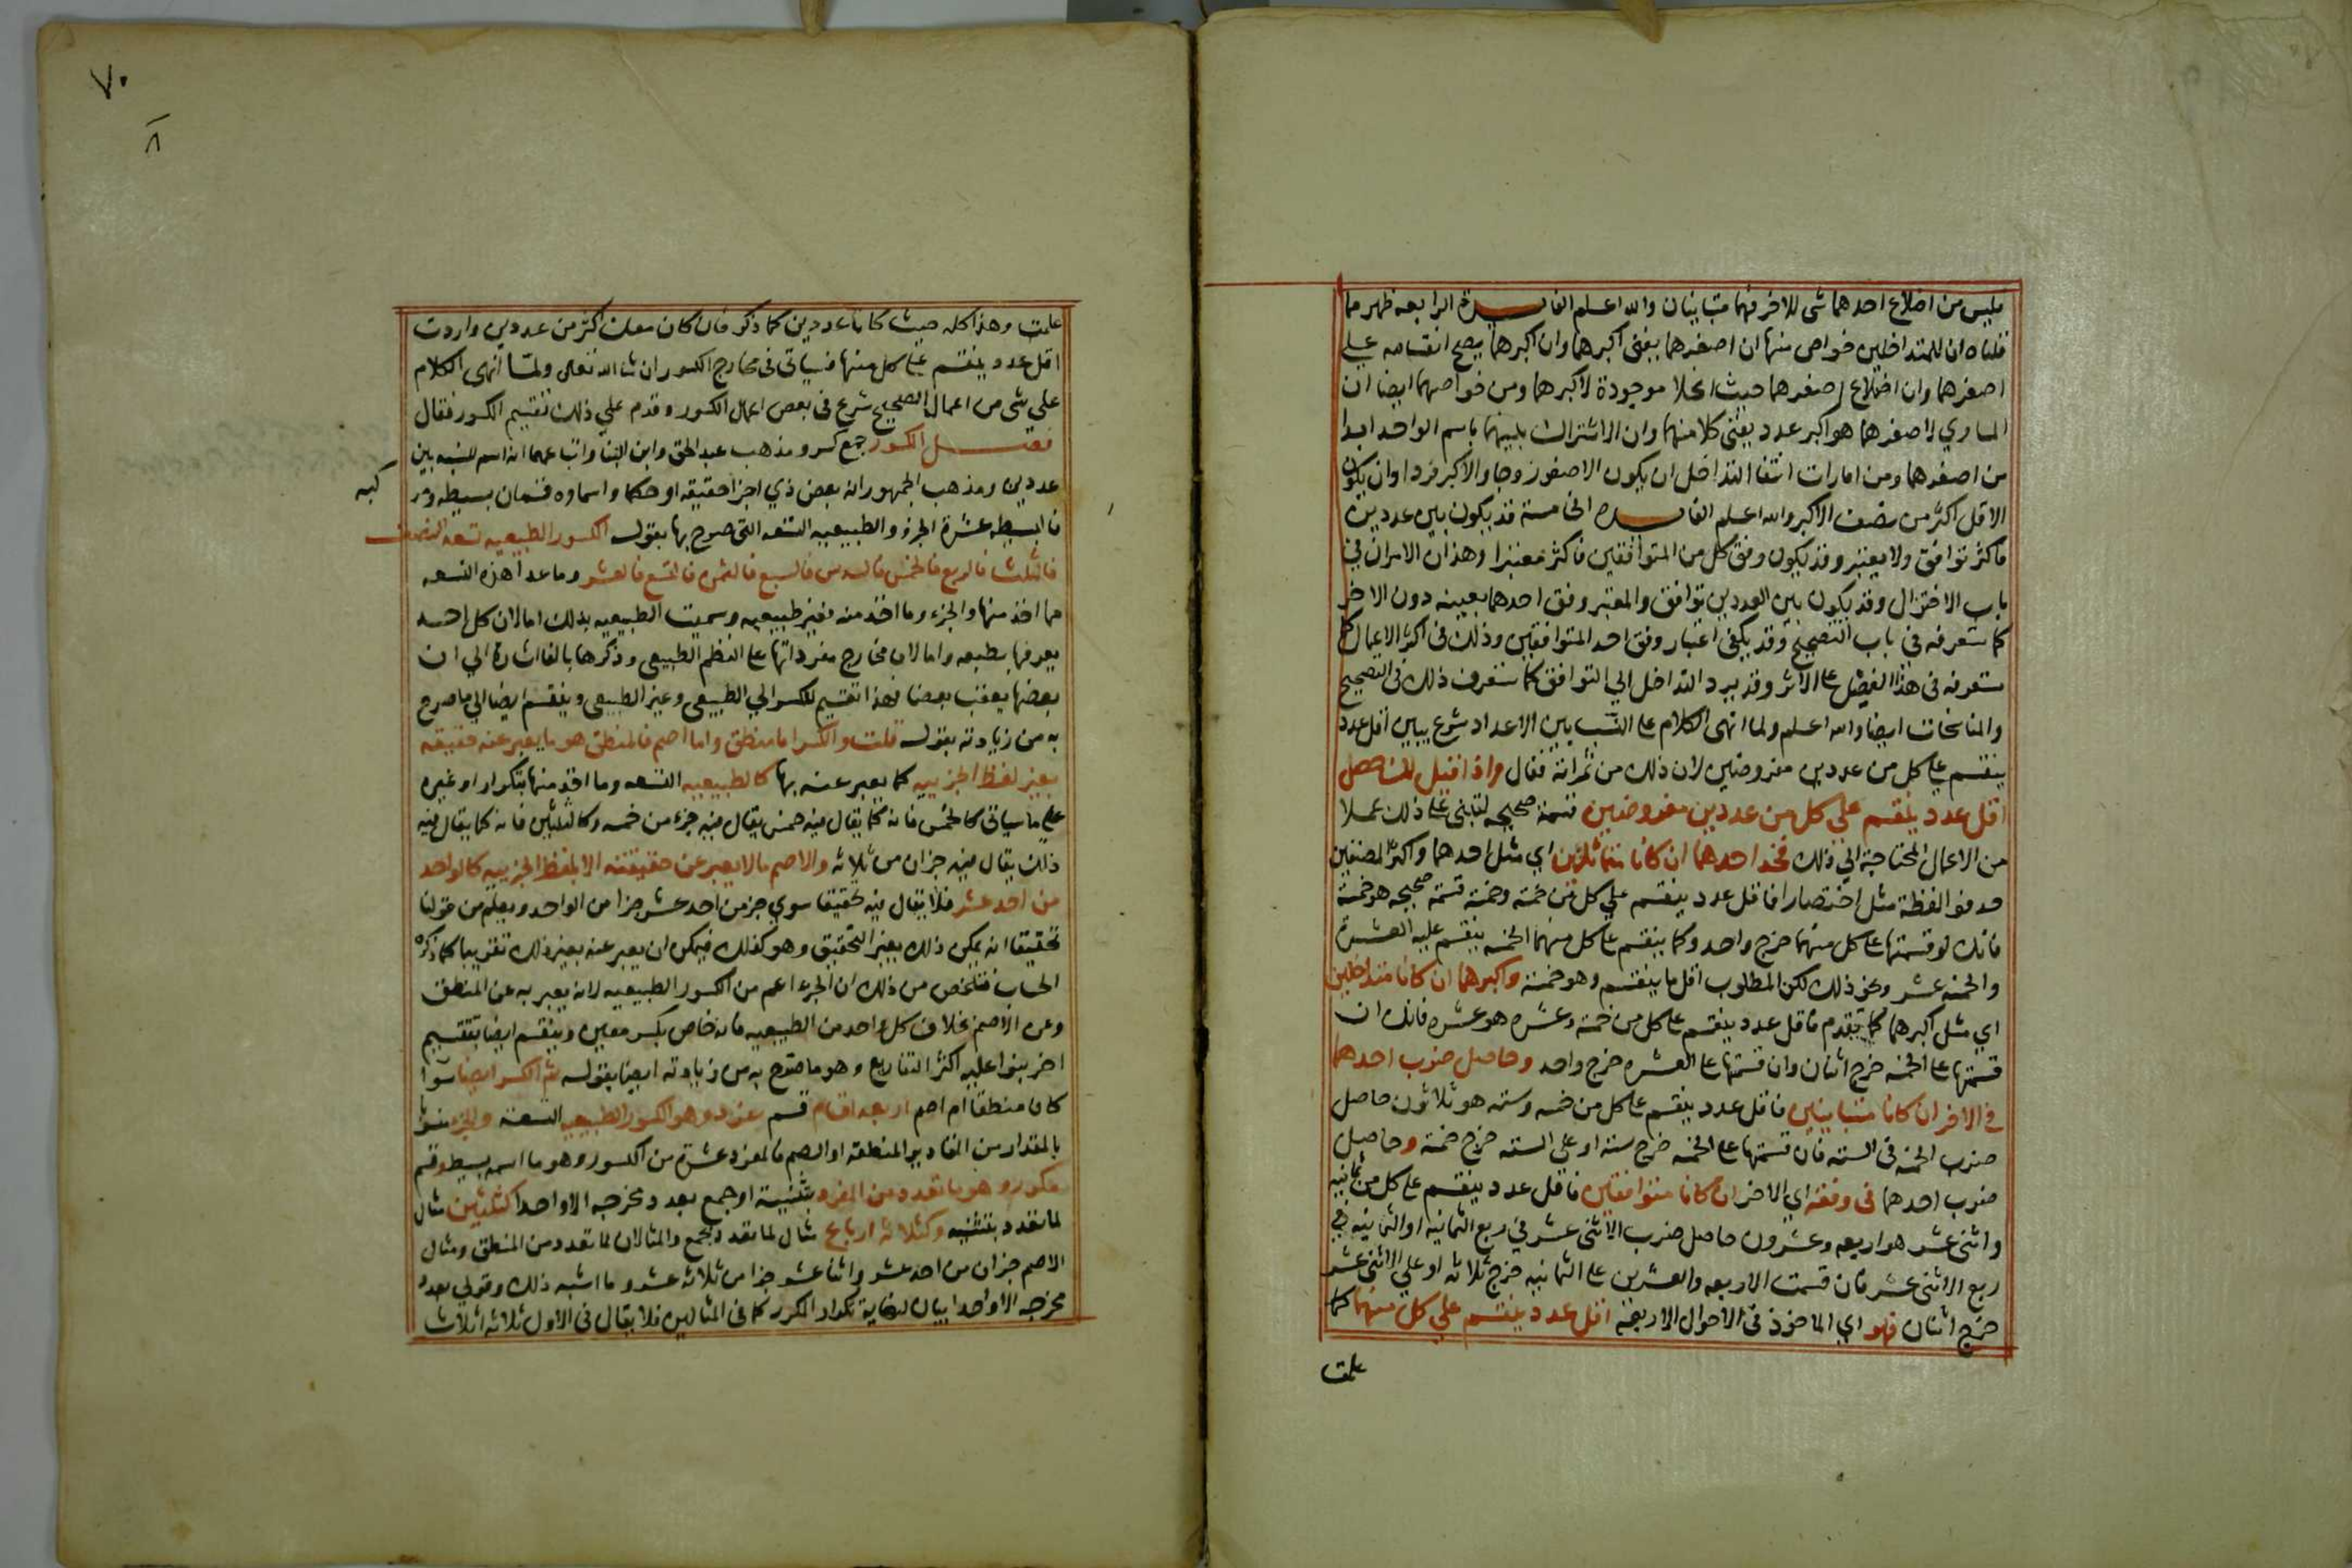 فليس من اضلاع احدهما شى للاخر فهما متباينان والله اعلم الفايدة الرابعه ظهر مما
قلناه ان للمتداخلين خواص منها ان اصغرهما يفنى اكبرهما وان اكبرهما يصح انقسامه على
اصغرهما وان اضلاع اصغرهما حيث انحلا موجودة لاكبرهما ومن خواصهما ايضا ان
المساوي لاصغرهما هو اكبر عدد يفنى كلا منهما وان الاشتراك بينهما باسم الواحد ابدا
من اصغرهما ومن امارات انتفا التداخل ان يكون الاصغر زوجا والاكبر فردا وان يكون
الاقل اكثر من نصف الاكبر والله اعلم الفايده الخامسة قد يكون بين عددين
فاكثر توافق ولا يعتبر وقد يكون وفق كل من المتوافقين فاكثر معتبرا وهذان الامران في
باب الاختزال وقد يكون بين العددين توافق والمعتبر وفق احدهما بعينه دون الاخر
كما ستعرفه في باب التصحيح وقد يكفى اعتبار وفق احد المتوافقين وذلك فى اكثر الاعمال كما
ستعرفه فى هذا الفصل على الاثر وقد يرد التداخل الي التوافق كما ستعرف ذلك فى التصحيح
والمناسخات ايضا والله اعلم ولما انهى الكلام على النسب بين الاعداد شرع يبين اقل عدد
ينقسم على كل من عددين مفروضين لان ذلك من ثمراته فقال واذا قيل لك حصل
اقل عدد ينقسم علي كل من عددين مفروضين قسمة صحيحه لتبنى على ذلك عملا
من الاعمال المحتاجة الي ذلك فخذ احدهما ان كانا متماثلين اي مثل احدهما واكثر المصنفين
حذفوا لفظة مثل اختصارا فاقل عدد ينقسم علي كل من خمسة وخمسة قسمة صحيحه هو خمسة
فانك لو قسمتها على كل منهما خرج واحد وكما ينقسم على كل منهما الخمسه ينقسم عليه العشرة
والخمسة عشر ونحو ذلك لكن المطلوب اقل ما ينقسم وهو خمسة واكبرهما ان كانا متداخلين
اي مثل اكبرهما كما تقدم فاقل عدد ينقسم على كل من خمسة وعشره هو عشره فانك ان
قسمتها على الخمسه خرج اثنان وان قسمتها على العشره خرج واحد وحاصل ضرب احدهما
في الاخر ان كانا متباينين فاقل عدد ينقسم على كل من خمسه وسته هو ثلاثون حاصل
ضرب الخمسه فى السته فان قسمتها على الخمسه خرج ستة او على السته خرج خمسة وحاصل
ضرب احدهما فى وفقه اي الاخر ان كانا متوافقين فاقل عدد ينقسم على كل من ثمانيه
واثنى عشر هو اربعه وعشرون حاصل ضرب الاثنى عشر في ربع الثمانيه او الثمانيه في
ربع الاثنى عشر فان قسمت الاربعه والعشرين على الثمانيه خرج ثلاثه او علي الاثنى عشر
خرج اثنان فهو اي الماخوذ فى الاحوال الاربعة اقل عدد ينقسم علي كل منهما كما
علمت
٧٠
٨
علمت وهذا كله حيث كانا عددين كما ذكر فان كان معك اكثر من عددين واردت
اقل عدد ينقسم على كل منها فسياتى فى مخارج الكسور ان شا الله تعالى ولما انهى الكلام
علي شى من اعمال الصحيح شرع فى بعض اعمال الكسور وقدم علي ذلك تقسيم الكسور فقال
فصل الكسور جمع كسر ومذهب عبد الحق وابن البنا واتباعهما انه اسم للنسبه بين
عددين ومذهب الجمهور انه بعض ذي اجزا حقيقه او حكما واسماوه قسمان بسيطه ومر
كبه
فالبسيطه عشرة الجزء والطبيعيه التسعه التى صرح بها بقوله الكسور الطبيعيه تسعه النصف
فالثلث فالربع فالخمس فالسدس فالسبع فالثمن فالتسع فالعشر وما عدا هذه التسعه
مما اخذ منها والجزء وما اخذ منه فغير طبيعيه وسميت الطبيعيه بذلك اما لان كل احد
يعرفها بطبعه واما لان مخارج مفرداتها على النظم الطبيعى وذكرها بالفا اشارة الي ان
بعضها يعقب بعضا فهذا تقسيم للكسر الي الطبيعى وغير الطبيعى وينقسم ايضا الي ما صرح
به من زيادته بقوله قلت والكسر اما منطق واما اصم فالمنطق هو ما يعبر عنه حقيقه
بغير لفظ الجزييه كما يعبر عنه بها كالطبيعيه التسعه وما اخذ منها بتكرار او غيره
على ما سياتى كالخمس فانه كما يقال فيه خمس يقال فيه جزء من خمسه وكالثلثين فانه كما يقال فيه
ذلك يقال فيه جزان من ثلاثه والاصم ما لا يعبر عن حقيقته الا بلفظ الجزييه كالواحد
من احد عشر فلا يقال فيه تحقيقا سوي جز من احد عشر جزا من الواحد ويعلم من قولنا
تحقيقا انه يمكن ذلك بغير التحقيق وهو كذلك فيمكن ان يعبر عنه بغير ذلك تقريبا كما ذكره
الحساب فتلخص من ذلك ان الجزء اعم من الكسور الطبيعيه لانه يعبر به عن المنطق
وعن الاصم بخلاف كل واحد من الطبيعيه فانه خاص بكسر معين وينقسم ايضا تقسيم
اخر بنوا عليه اكثر التفاريع وهو ما صرح به من زيادته ايضا بقوله ثم الكسر ايضا سوا
كان منطقا ام اصم اربعة اقسام قسم مفرد وهو الكسور الطبيعيه التسعة والجزء منسوبا
بالمقدار من المقادير المنطقة او الصم فالمفرد عشرة من الكسور وهو ما اسمه بسيط وقسم
مكرر وهو ما تعدد من المفرد بتثنية او جمع بعدد مخرجه الا واحدا كثلثين مثال
لما تعدد بتثنيه وكثلاثه ارباع مثال لما تعدد بجمع والمثالان لما تعدد من المنطق ومثال
الاصم جزان من احد عشر واثنا عشر جزا من ثلاثه عشر وما اشبه ذلك وقولي بعدد
مخرجه الا واحدا بيان لغاية تكرار المكرر كما فى المثالين فلا يقال فى الاول ثلاثه اثلاث